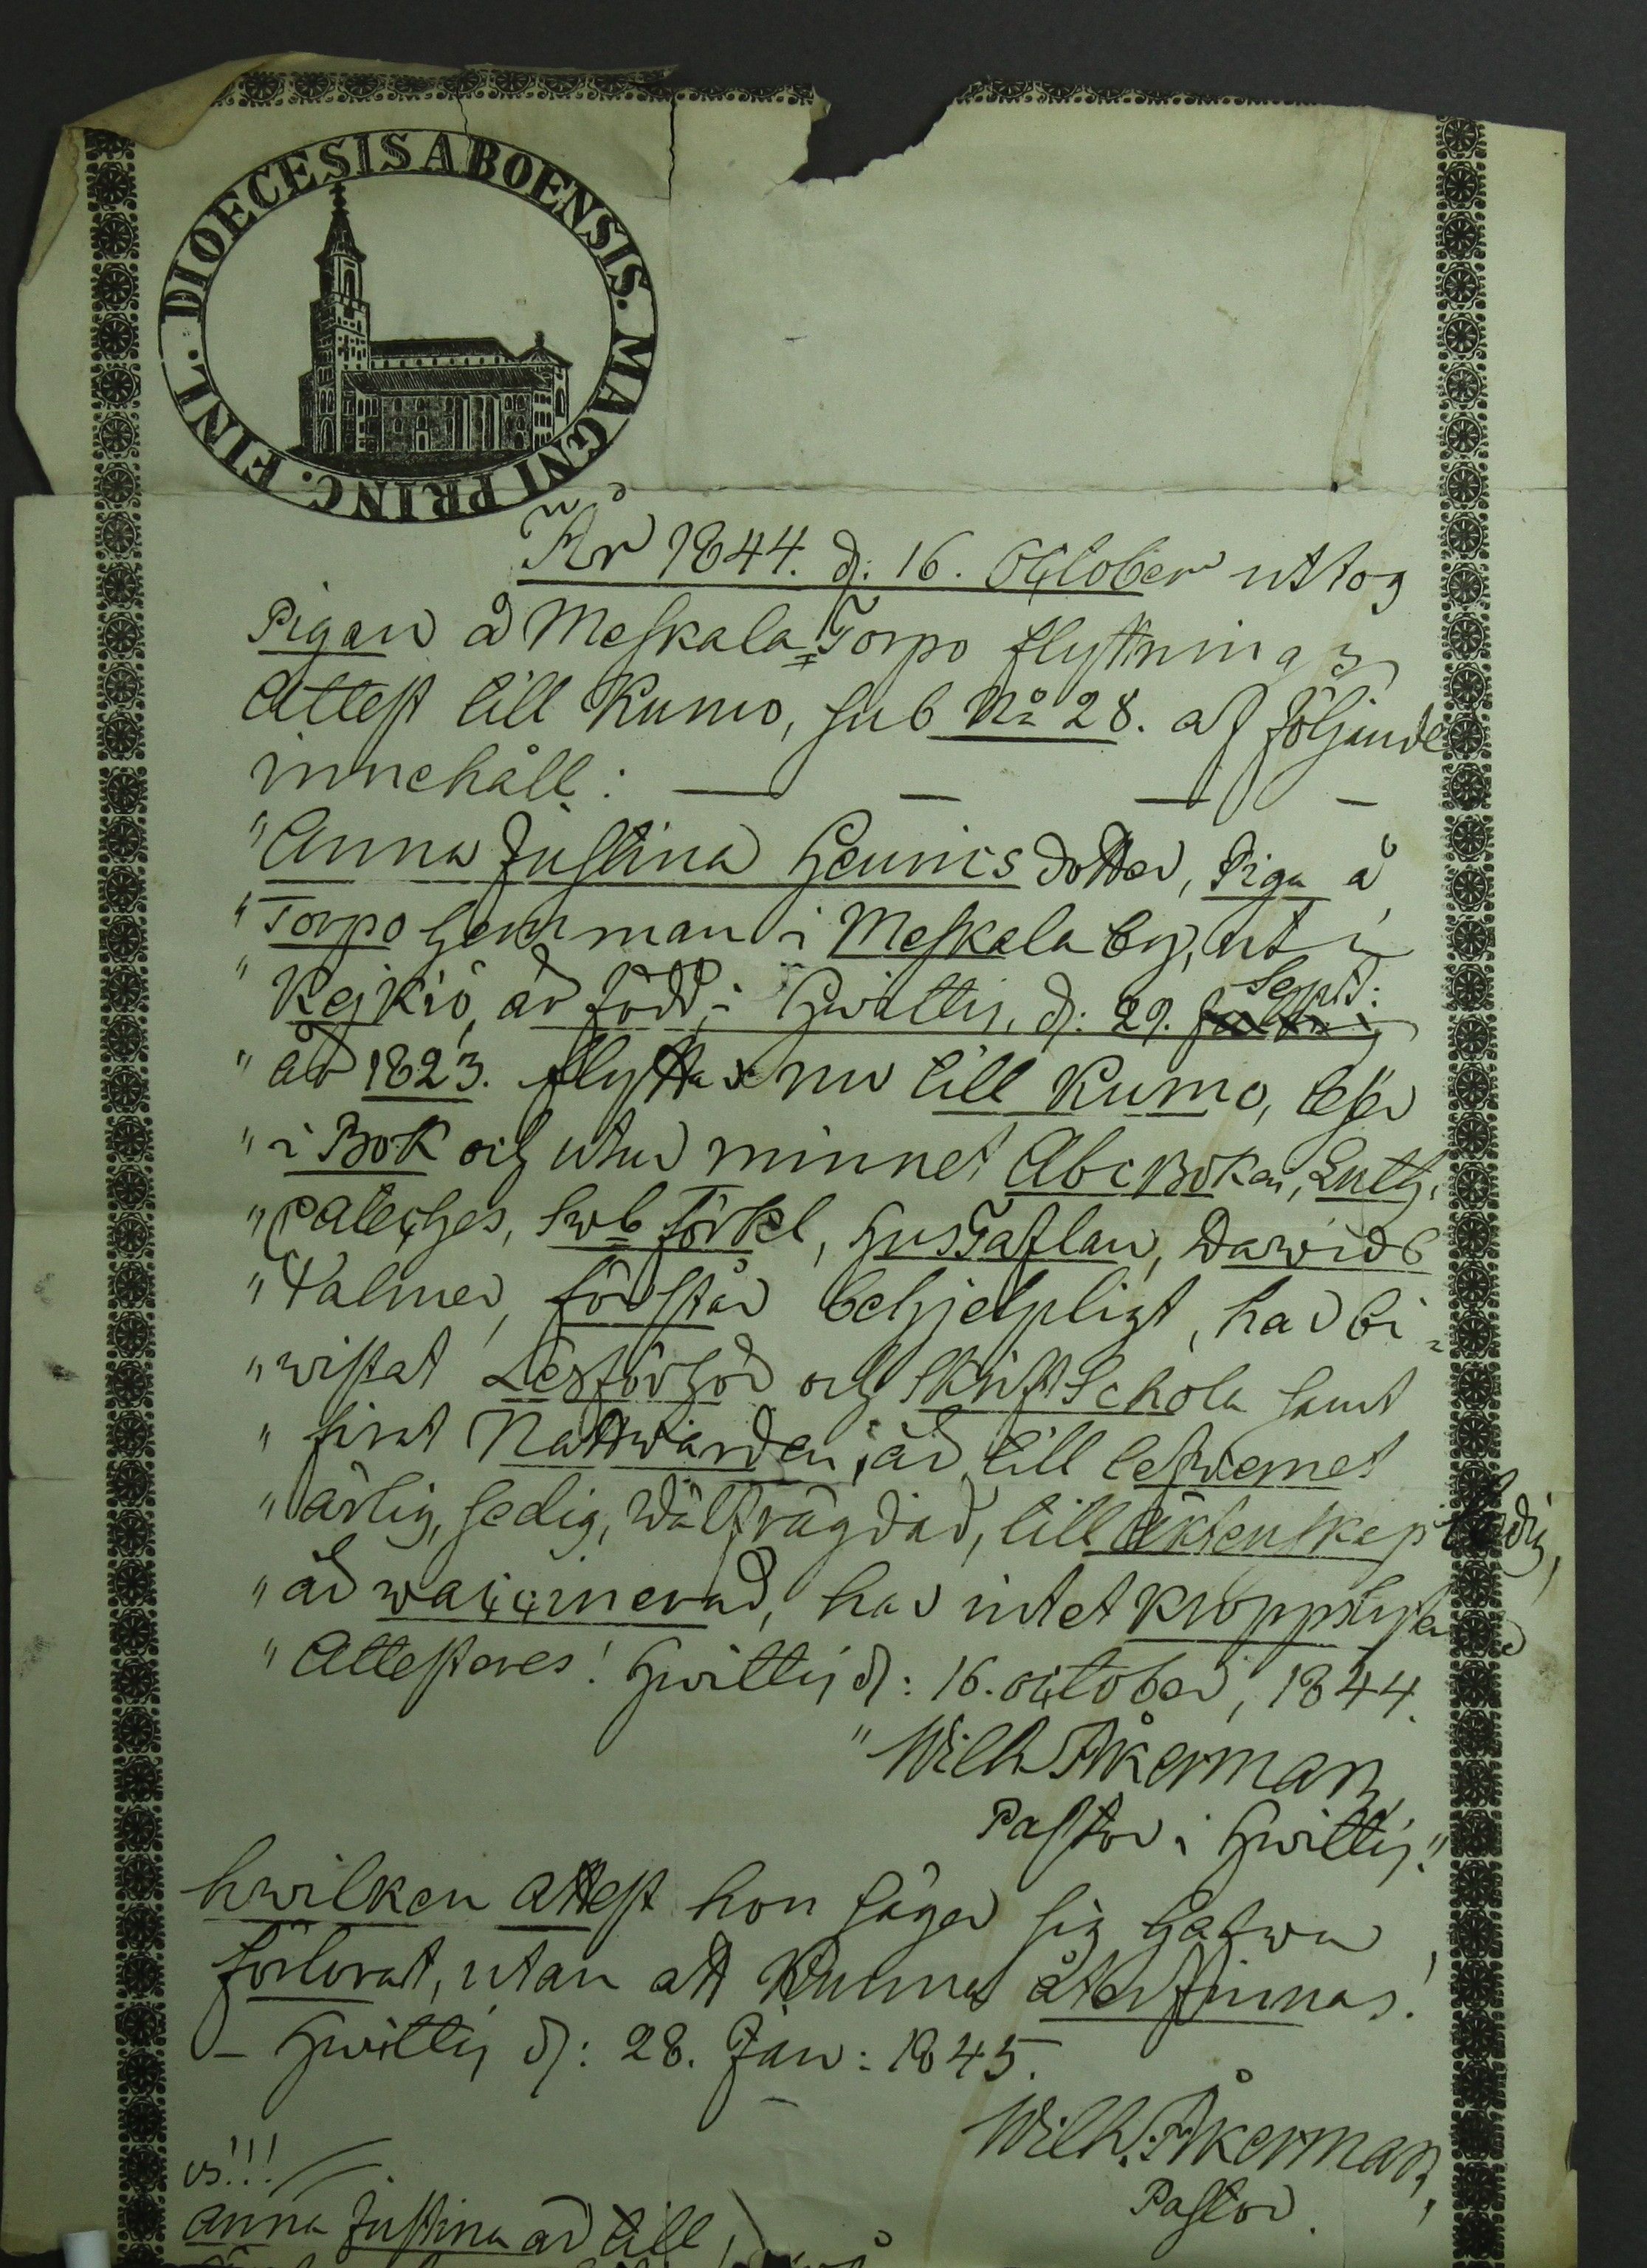 DIOECESIS ABOENSIS. MAGNI PRINC. FINL.
År 1844. d. 16. October uttog
Pigan å Meskala=Torpo flyttnings
Attest till Kumo, sub No 28. af följande
innehåll: — — — —
"Anna Justina Henricsdotter, Piga å
"Torpo hemman i Meskala by, ut i
"Kejkiö, är född i Hwittis, d: 29. Sept:
"år 1823. flyttar nu till Kumo, läser
"i Bok och utur minnet Abc Boken, Luth.
"Cateches, Swb förkl, Hustaflan, Dawids
"Psalmer, förstår behjelpligt, har bi=
"wistat Läsförhör och SkriftSchola samt
"firat Nattwarden, är till lefwernet
"ärlig, sedig, wälfrägdad, till äktenskap ledig,
"är waccinerad, har intet kroppslyte
"Attesteres! Hwittis d: 16. october, 1844.
"Wilh Åkerman,
Pastor i Hwittis."
hwilken attest hon säger sig hafwa
förlorat, utan att kunna återfinnas!
— Hwittis d: 28. Jan: 1845.
Wilh. Åkerman,
Pastor.
vs!!!
Anna Justina är till